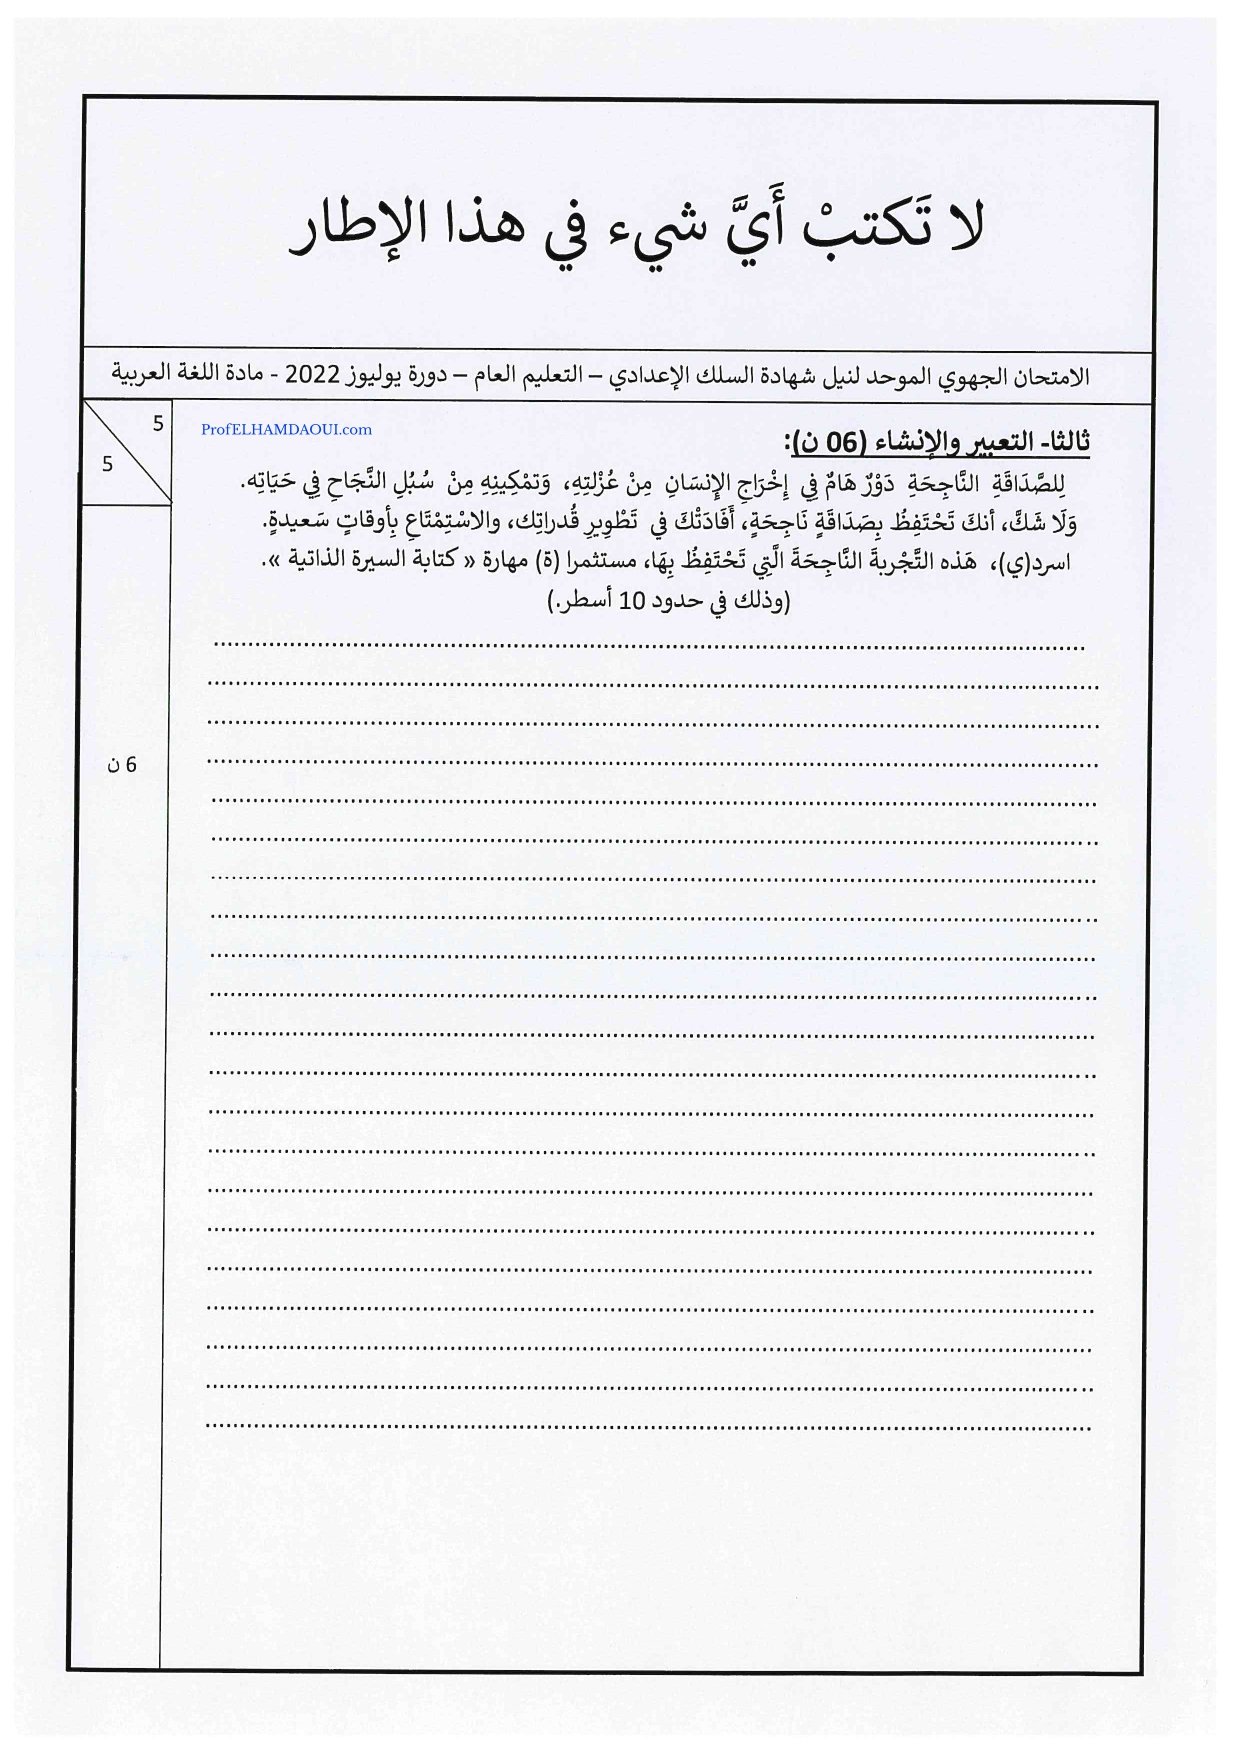 لا تَكتبْ أَيَّ شيء في هذا الإطار
الامتحان الجهوي الموحد لنيل شهادة السلك الإعدادي – التعليم العام – دورة يوليوز 2022 - مادة اللغة العربية
5
5
ProfELHAMDAOUI.com
ثالثا- التعبير والإنشاء (06 ن):
لِلصَّدَاقَةِ النَّاجِحَةِ دَوْرٌ هَامٌ فِي إِخْرَاجِ الإِنسَانِ مِنْ عُزْلتِهِ، وَتمْكِينِهِ مِنْ سُبُلِ النَّجَاحِ فِي حَيَاتِه.
وَلَا شَكَّ، أنكَ تَحْتَفِظُ بِصَدَاقَةٍ نَاجِحَةٍ، أَفَادَتْكَ في تَطْوِيرِ قُدراتِك، والاسْتِمْتَاعِ بِأوقاتٍ سَعيدةٍ.
اسرد(ي)، هَذه التَّجْربةَ النَّاجِحَةَ الَّتِي تَحْتَفِظُ بِهَا، مستثمرا (ة) مهارة « كتابة السيرة الذاتية ».
(وذلك في حدود 10 أسطر.)
6 ن